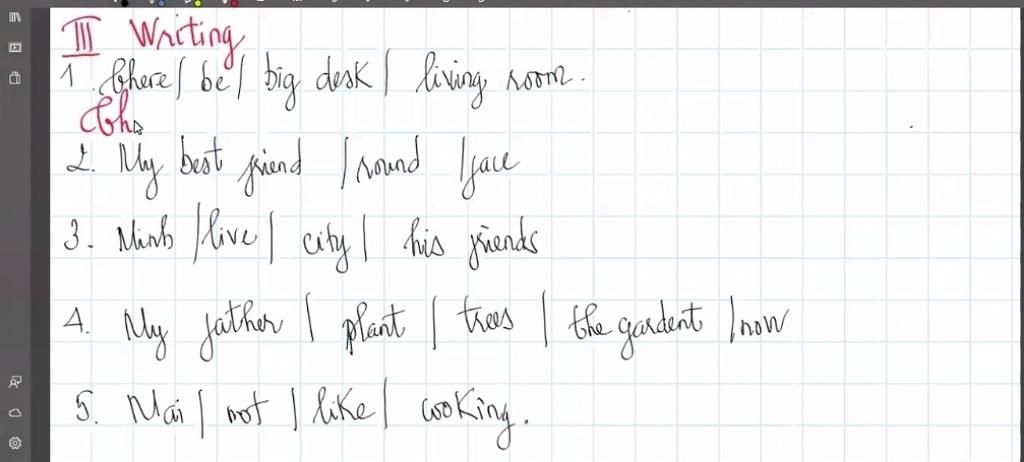 III Writing
1. There / be / big desk / living room.
Th
2. My best friend / round / face
3. Minh / live / city / his friends
4. My father / plant / trees / the gardent / now
5. Mai / not / like / cooking.